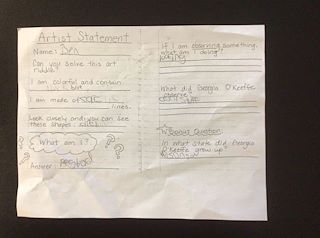 Artist Statement
Name: Ben
Can you solve this art
riddle?
I am colorful and contain
I am made of
lines.
Look closely and you can see
these shapes:
What am I?
Answer:
If I am observing something,
what am I doing?
looking
What did Georgia O'Keeffe
observe?
Bonus Question
In what state did Georgia
O'Keeffe grow up?